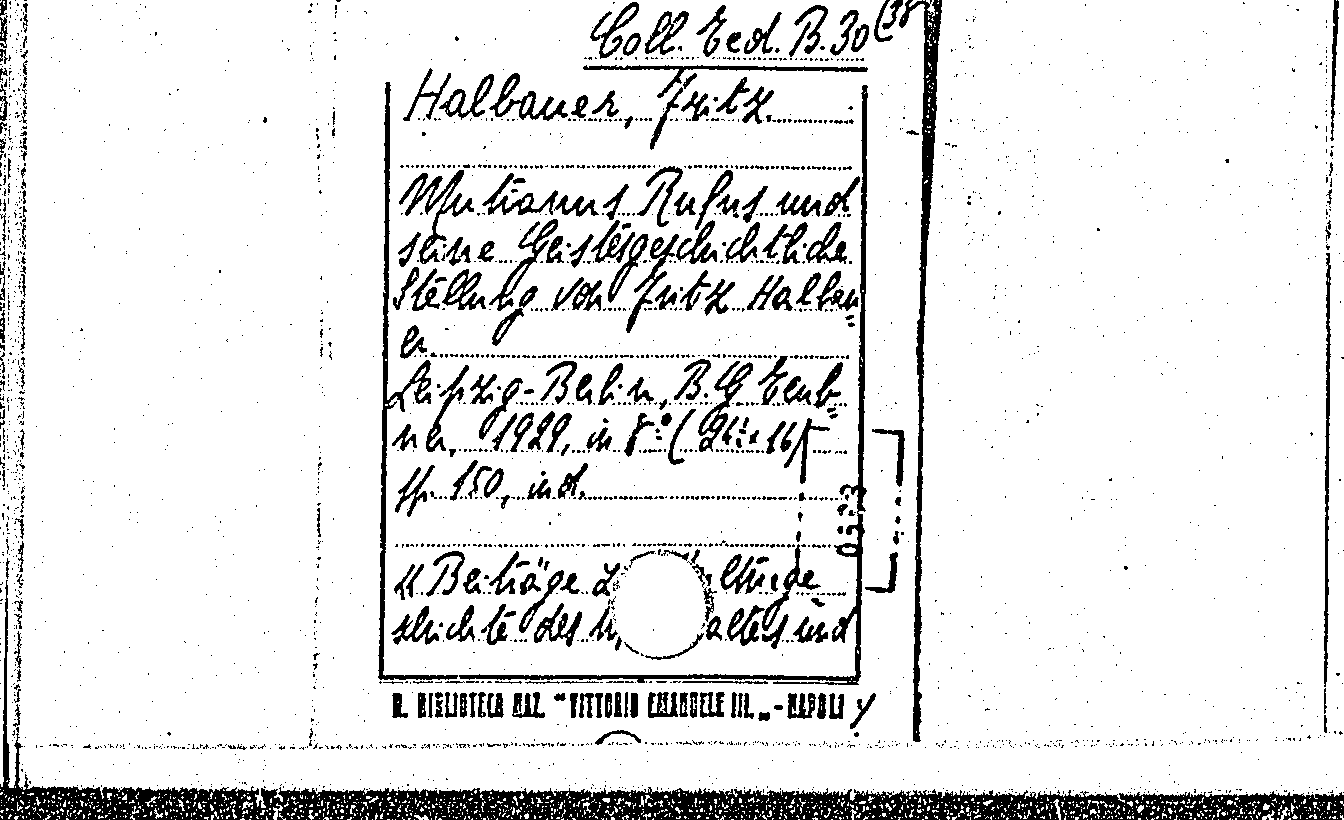 Coll. Ted. B. 30 (38
Halbauer, Fritz.
Mutianus Rufus und
seine Geistesgeschichtliche
Stellung von Fritz Halbau
er.
Leipzig-Berlin, B. G Teub
ner, 1929, in 8.° (24 x 16)
pp. 150, ind.
0533
"Beiträge z
schichte des alters und
R. BIBLIOTECA NAZ. "VITTORIO EMANUELE III„ - NAPOLI